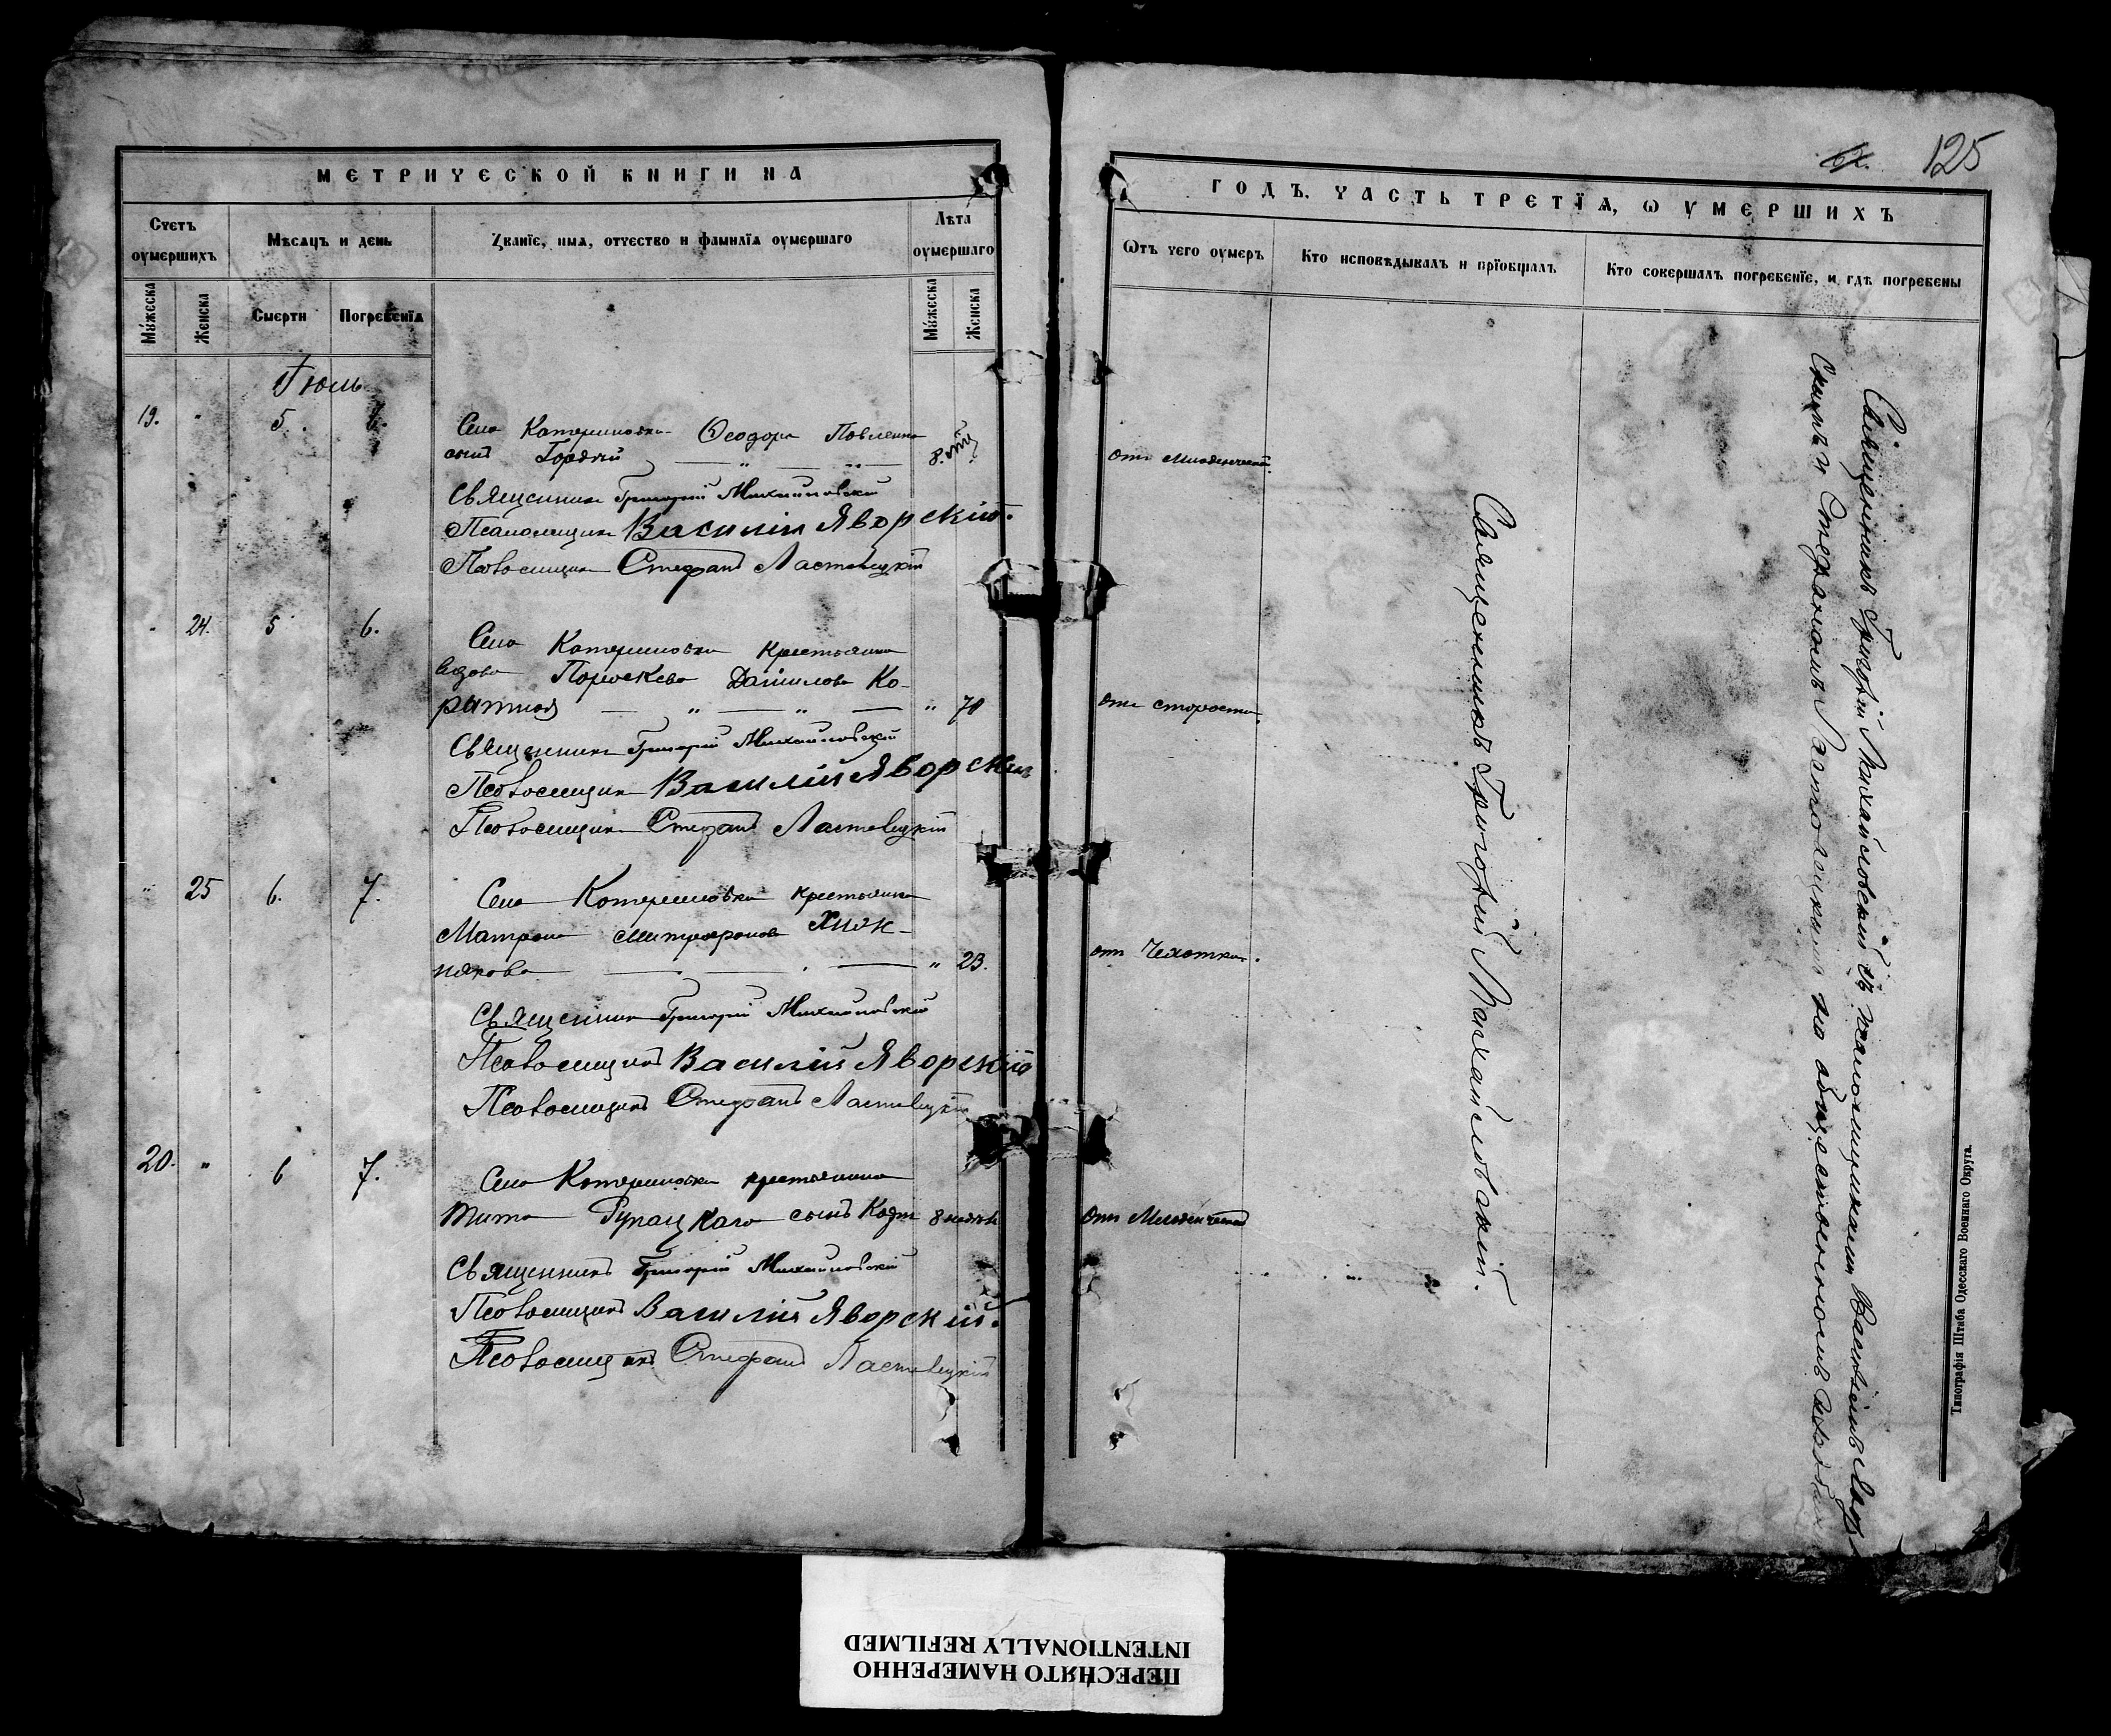 МЕТРИЧЕСКОЙ КНИГИ НА
Счетъ оумершихъ
Мѣсяцъ и день
Званїе, имя, отчество и фамилїя оумершаго
Лѣта оумершаго
Мꙋжеска
Женска
Смерти
Погребенїя
Мꙋжеска
Женска
Іюль
19. " 5. 6. Села Катериновки Ѳеодора Павленка
сынъ Гордѣй 8.
Священникъ Григорій Михайловскій
Псаломщикъ Василій Яворскій.
Псаломщикъ Стефанъ Ластовецкій
" 24. 5 6. Села Катериновки крестьянка
вдова Параскева Даніилова Ко-
" 70
Священникъ Григорій Михайловскій
Псаломщикъ Василій Яворскій
Псаломщикъ Стефанъ Ластовецкій
" 25 6. 7. Села Катериновки крестьянка
Матрона Митрофанова
" 23.
Священникъ Григорій Михайловскій
Псаломщикъ Василій Яворскій
Псаломщикъ Стефанъ Ластовецкій
20. " 6 7. Села Катериновки крестьянина
Тита сынъ 8
Священникъ Григорій Михайловскій
Псаломщикъ Василій Яворскій.
Псаломщикъ Стефанъ Ластовецкій
125
ГОДЪ, ЧАСТЬ ТРЕТЇЯ, Ѡ ОУМЕРШИХЪ
Ѿтъ чего оумеръ
Кто исповѣдывалъ и прїобщалъ
Кто совершалъ погребенїе, и гдѣ погребены
отъ младенческой
отъ старости.
отъ Чахотки.
отъ Младенческой
Священникъ Григорій Михайловскій.
Священникъ Григорій Михайловскій съ псаломщиками Василіемъ Явор
скимъ и Стефаномъ Ластовецкимъ на общественномъ кладбищѣ
Типографія Штаба Одесскаго Военнаго Округа.
ПЕРЕСНЯТО НАМЕРЕННО
INTENTIONALLY REFILMED